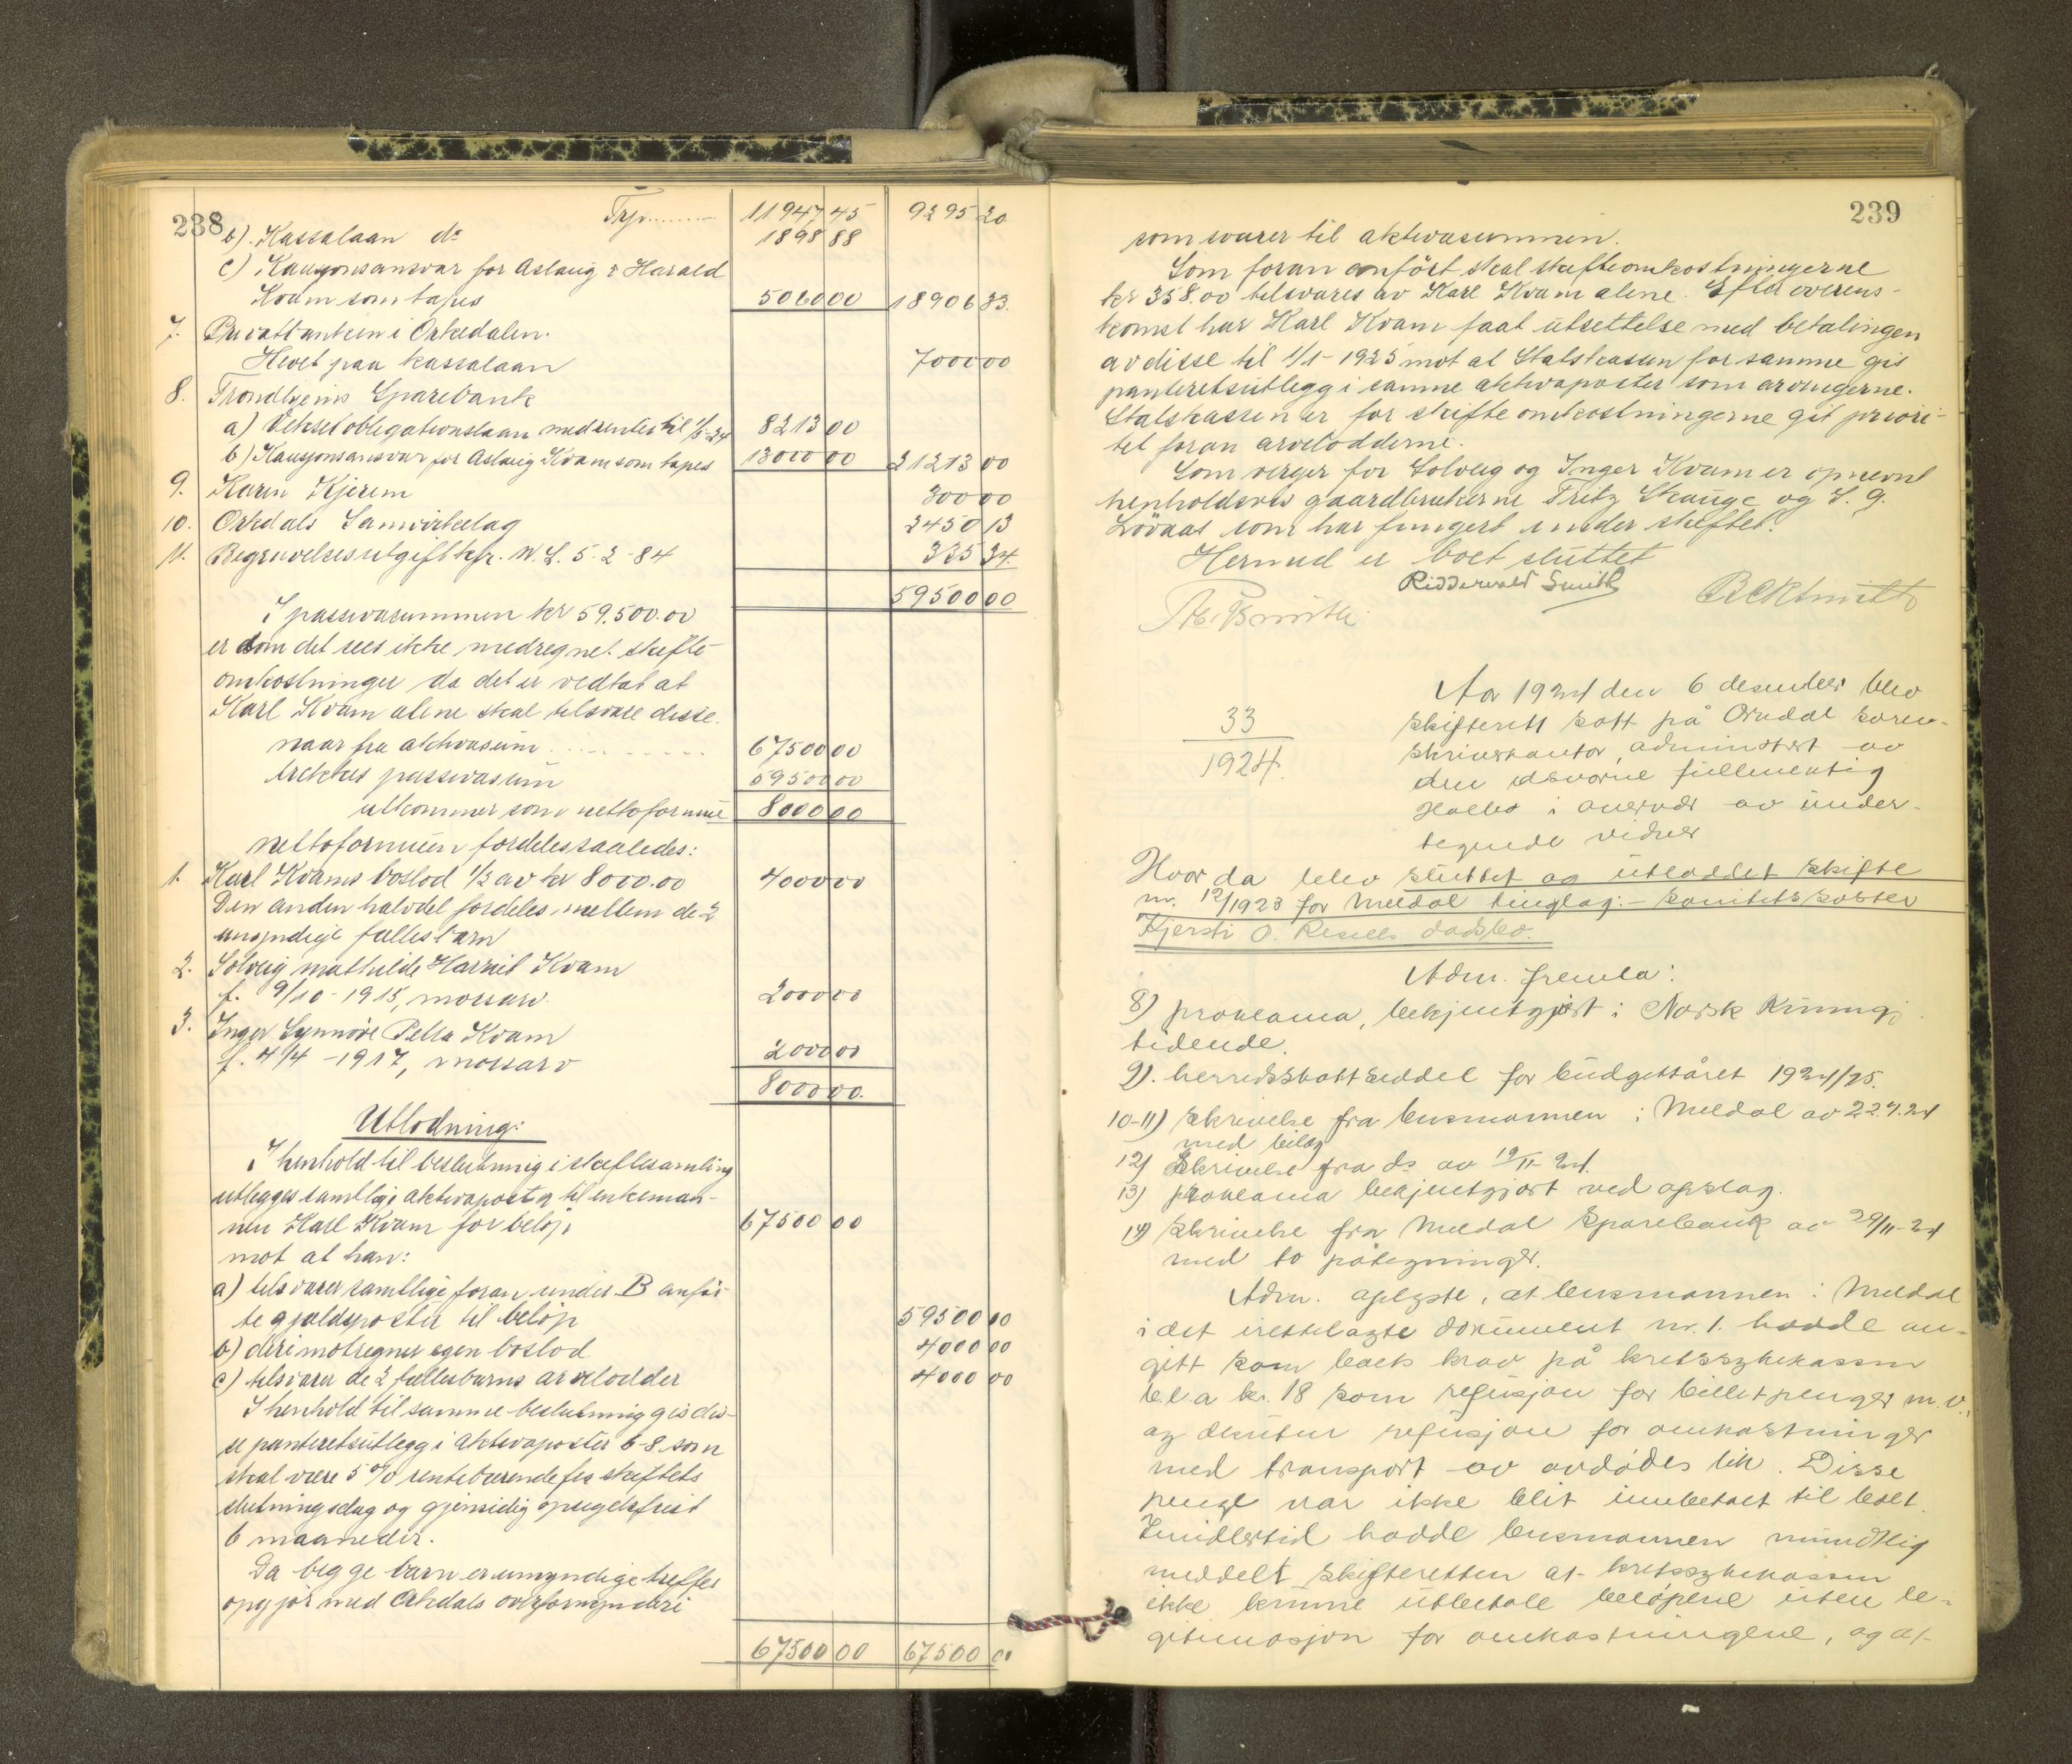 238
Trp......... 11947 45 9295 20
b). Kassalaan do 1898 88
c) Kausjonsansvar for Aslaug & Harald
Kvam som tapes 5060 00 18906 33.
7. Privatbanken i Orkedalen.
Hevet paa kassalaan 7000 00
8. Trondhjems Sparebank
a) Vekselobligationslaan med renter til 1/5-24 8213 00
b) Kausjonsansvar for Aslaug Kvam som tapes 13000 00 21213 00
9. Karen Kjerem 300 00
10. Orkdals Samvirkelag 2450 13
11. Begravelsesutgift kfr. N. L. 5-2-84 335 34.
59500 00
I passivasummen kr 59.500.00
er som det sees ikke medregnet skifte-
omkostninger da det er vedtat at
Karl Kvam alene skal tilsvare disse.
naar fra aktivasum ........... 67500 00
trækkes passivasum 59500 00
utkommer som nettoformue 8000 00
Nettoformuen fordeles saaledes:
1. Karl Kvams boslod 1/2 av kr 8000.00 4000 00
Den anden halvdel fordeles mellem de 2
umyndige fællesbarn
2. Solveig Mathilde Harriet Kvam
f. 9/10-1915, morsarv 2000 00
3. Inger Synnöve Petra Kvam
f. 4/4-1917, morsarv 2000 00
8000 00.
Utlodning:
I henhold til beslutning i skiftesamling
utlegges samtlige aktivaposter til enkeman-
nen Karl Kvam for beløp 67500 00
mot at han:
a) tilsvarer samtlige foran under B anför-
te gjældsposter til beløp 59500 00
b) deri motregner egen boslod 4000 00
c) tilsvarer de 2 fællesbarns arvelodder 4000 00
I henhold til samme beslutning gis dis-
se panteretsutlegg i Aktivaposter 6-8 som
skal være 5% rentebærende fra skiftets
slutningsdag og gjensidig opsigelsfrist
6 maaneder.
Da begge barn er umyndige treffes
opgjør med Orkdals overformynderi
67500 00 67500 00
239
som svarer til aktivasummen.
Som foran anført skal skifteomkostningerne
kr 358.00 tilsvares av Karl Kvam alene. Efter overens-
komst har Karl Kvam faat utsettelse med betalingen
av disse til 1/1-1925 mot at Statskassen for samme gis
panteretsutlegg i samme aktivaposter som arvingerne.
Statskassen er for skifteomkostningerne git priori-
tet foran arvelodderne.
Som verger for Solveig og Inger Kvam er opnevnt
henholdsvis gaardbrukerne Fritz Skauge og S. G.
Lövaas som har fungert under skiftet.
Hermed er boet sluttet
Ridderwold Smith
33
1924.
Aar 1924 den 6 desember blev
skifterett satt på Orkdal soren-
skriverkontor, administrert av
den edsvorne fullmektig
Holbo i overvær av under-
tegnede vidner
Hvor da blev sluttet og utloddet skifte
nr. 12/1923 for Meldal tinglag: – sanitetssøster
Kjersti O. Resells dødsbo.
Adm. fremla:
8) proklama, bekjentgjort i Norsk Kunngj.
tidende.
9). herredsskattseddel for budgettåret 1924/25.
10-11) Skrivelse fra lensmannen i Meldal av 22.7.24
med bilag
12) Skrivelse fra do av 19/11-24.
13) proklama bekjentgjort ved opslag.
14) Skrivelse fra Meldal Sparebank av 29/11-24
med to påtegninger.
Adm. oplyste, at lensmannen i Meldal
i det irettelagte dokument nr. 1. hadde an-
gitt som boets krav på kretssykekassen
bl. a kr. 18 som refusjon for billetpenger m. v.,
og desuten refusjon for omkostninger
med transport av avdødes lik. Disse
penge var ikke blit innbetalt til boet.
Imidlertid hadde lensmannen mundtlig
meddelt skifteretten at kretssykekassen
ikke kunne utbetale beløpene uten le-
gitimasjon for omkostningene, og at